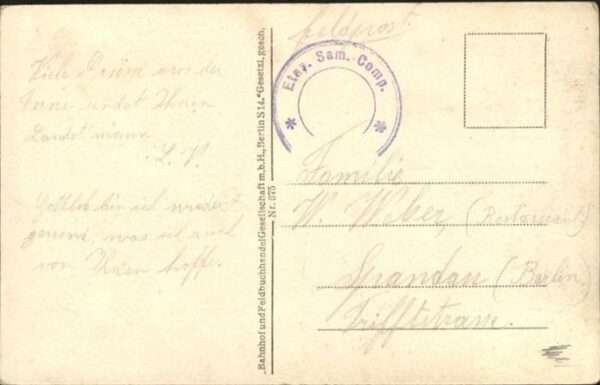 Feldpost
Etap. Sam. Comp.
Viele Grüsse aus der
Ferne sendet Ihnen
Landsmann
L. V.
Gottlob bin ich wieder
genesen, was ich auch
von Ihnen hoffe.
„Bahnhof und Feldbuchhandel Gesellschaft m.b.H., Berlin S 14.“ Gesetzl. gesch.
Nr. 875
Familie
W. Weber, (Restaurant)
Spandau (Berlin)
Trifftstrasse.